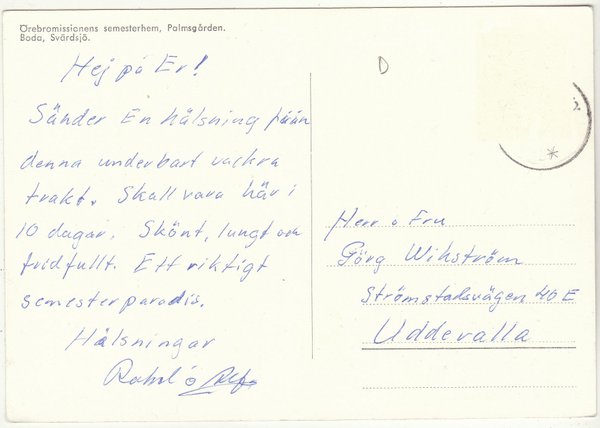 Örebromissionens semesterhem, Palmsgården.
Boda, Svärdsjö.
Hej på Er!
Sänder En hälsning från
denna underbart vackra
trakt. Skall vara här i
10 dagar. Skönt, lungt och
fridfullt. Ett riktigt
semesterparadis.
Hälsningar
D
Herr o Fru
Görg Wikström
Strömstadsvägen 40 E
Uddevalla